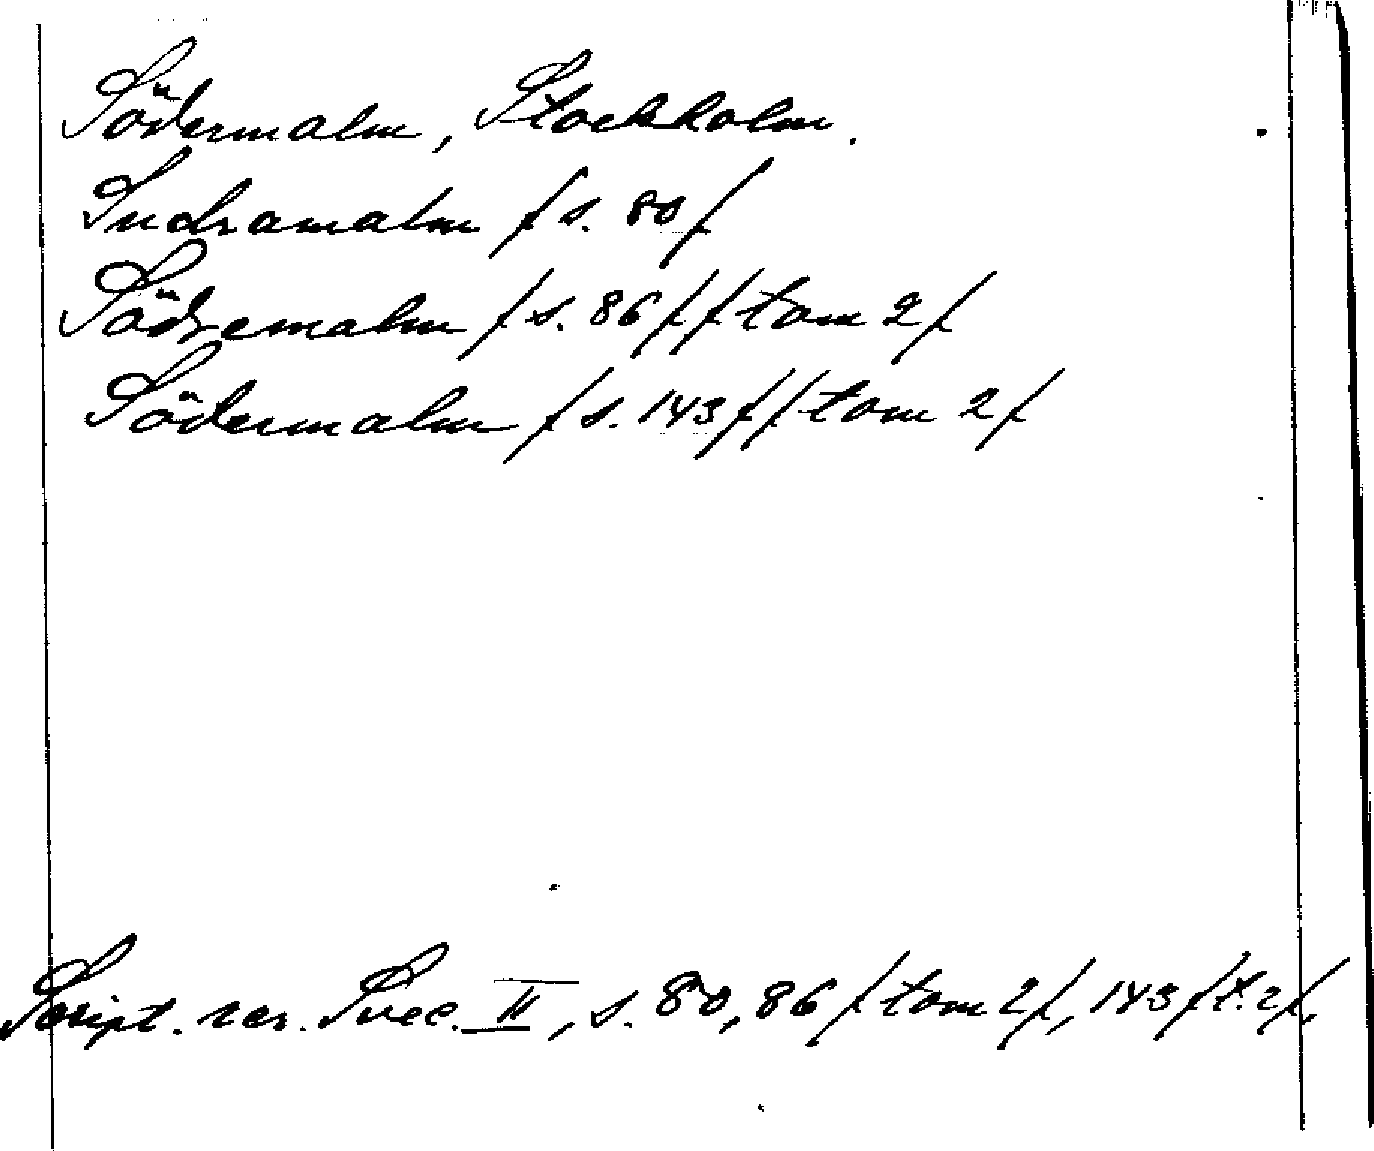 Södermalm, Stockholm.
Sudramalm /s. 80/
Södremalm /s. 86/ /tom 2/
Södermalm /s. 143/ /tom 2/
Script. rer. Svec. II, s. 80, 86 /tom 2/, 143 /t. 2/.